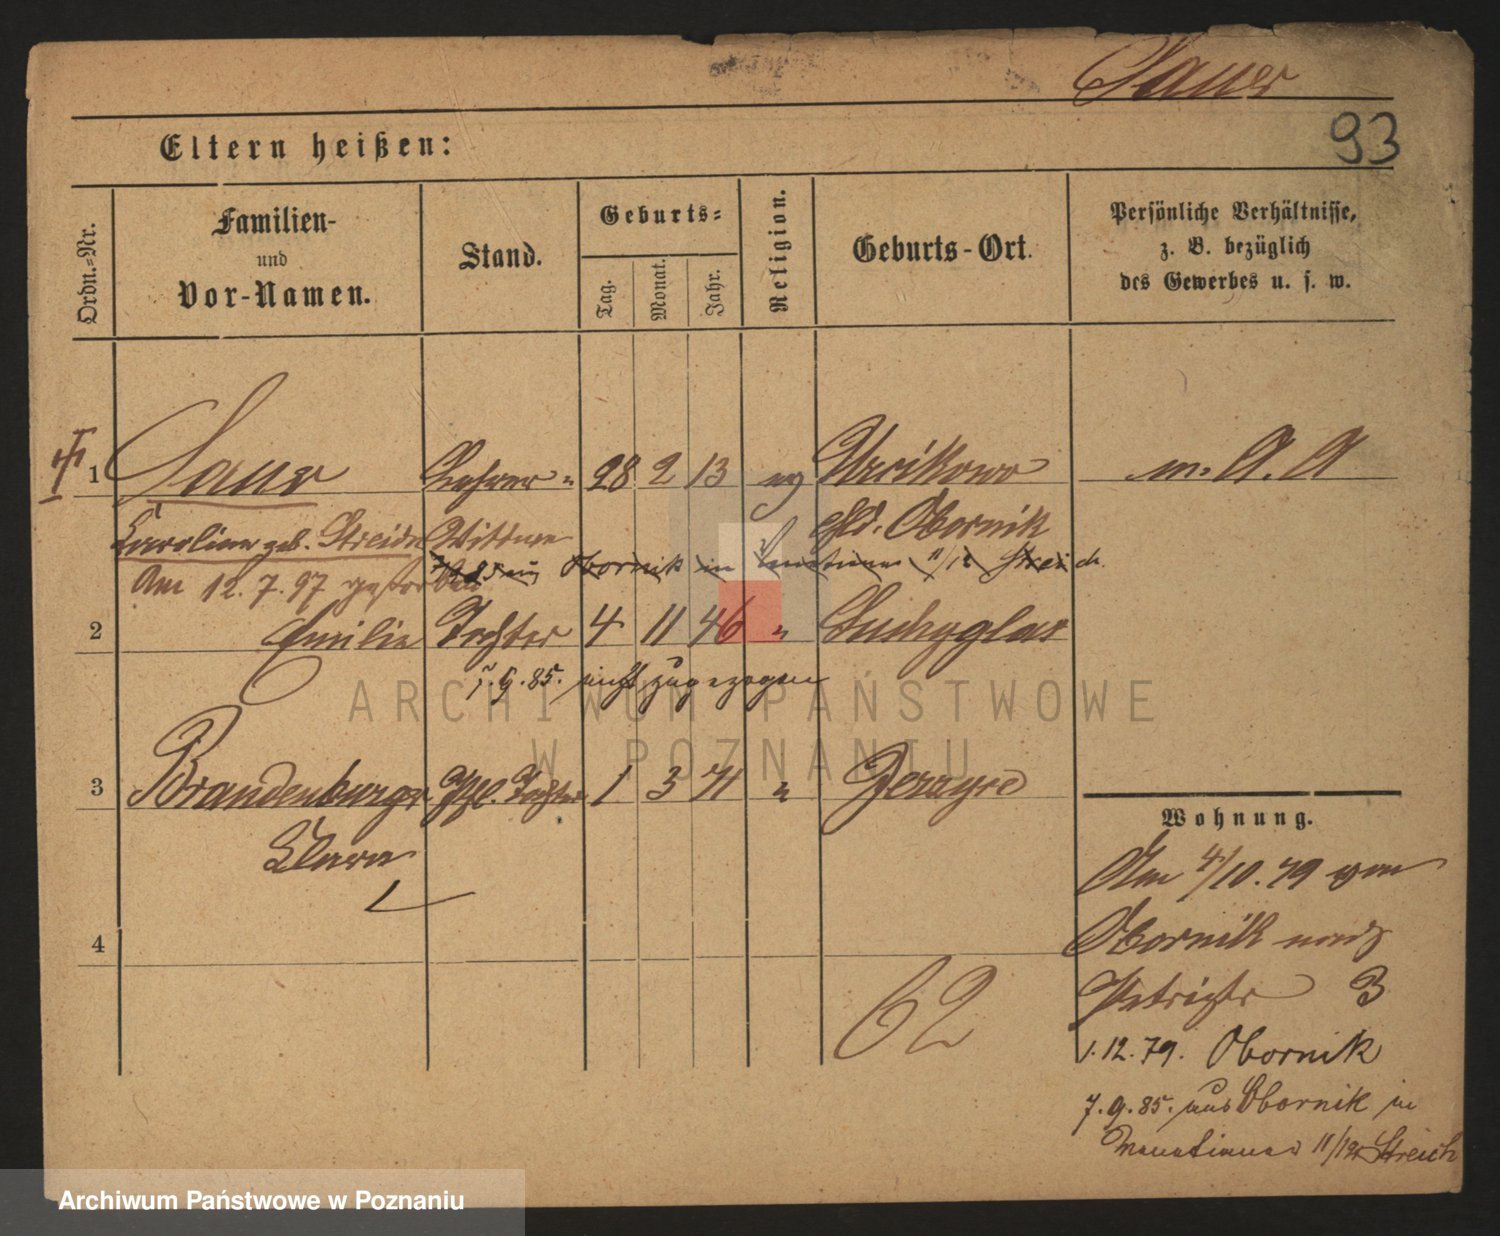 Sauer
93
Eltern heißen:
Ordn.-Nr.
Familien-
und
Vor-Namen.
Stand.
Geburts-
Tag.
Monat.
Jahr.
Religion.
Geburts-Ort.
Persönliche Verhältnisse,
z. B. bezüglich
des Gewerbes u. s. w.
1 Sauer Lehrer 28 2 13 ev Uscikowo m. A. A
Caroline geb. Wittwe Obornik
7/9 85 aus Obornik in Venetianer 11/12 Streich
Am 12. 7. 97 gestorben
2 Emilie Tochter 4 11 46 " Suchyglas
7. 9. 85. nicht zugezogen
3 Brandenburger Pfl. Tochter 1 3 71 " Jerzyce
Clara
4
62
Wohnung.
Am 4/10. 79 von
Obornik nach
3
1. 12. 79. Obornik
7. 9. 85. aus Obornik in
Venetianer 11/12 Streich
ARCHIWUM PAŃSTWOWE
W POZNANIU
Archiwum Państwowe w Poznaniu